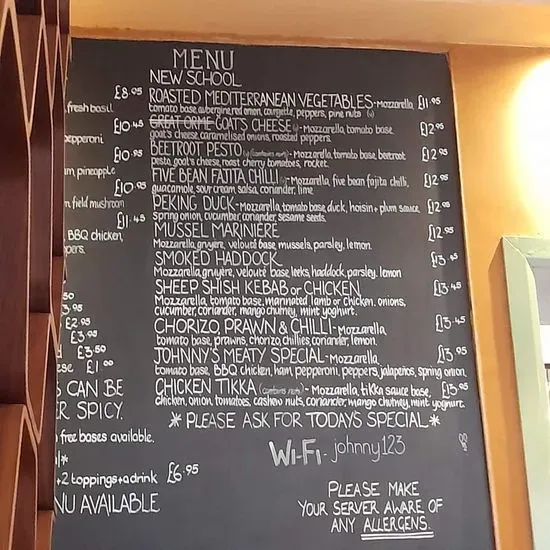 MENU
NEW SCHOOL
ROASTED MEDITERRANEAN VEGETABLES - Mozzarella, £11.95
tomato base, aubergine, red onion, courgette, peppers, pine nuts (v)
GREAT ORME GOAT'S CHEESE (v) - Mozzarella, tomato base, £12.95
goat's cheese, caramelised onions, roasted peppers.
BEETROOT PESTO (v) (contains nuts) - Mozzarella, tomato base, beetroot £12.95
pesto, goat's cheese, roast cherry tomatoes, rocket.
FIVE BEAN FAJITA CHILLI - Mozzarella, five bean fajita chilli, £12.95
guacamole, sour cream, salsa, coriander, lime
PEKING DUCK - Mozzarella, tomato base, duck, hoisin + plum sauce, £12.95
spring onion, cucumber, coriander, sesame seeds.
MUSSEL MARINIERE £12.95
Mozzarella, gruyère, velouté base, mussels, parsley, lemon.
SMOKED HADDOCK £13.45
Mozzarella, gruyère, velouté base, leeks, haddock, parsley, lemon
SHEEP SHISH KEBAB or CHICKEN £13.45
Mozzarella, tomato base, marinated lamb or chicken, onions,
cucumber, coriander, mango chutney, mint yoghurt.
CHORIZO, PRAWN & CHILLI - Mozzarella, £13.45
tomato base, prawns, chorizo, chillies, coriander, lemon.
JOHNNY'S MEATY SPECIAL - Mozzarella, £13.95
tomato base, BBQ chicken, ham, pepperoni, peppers, jalapeños, spring onion.
CHICKEN TIKKA (contains nuts) - Mozzarella, tikka sauce base, £13.95
chicken, onion, tomatoes, cashew nuts, coriander, mango chutney, mint yoghurt.
* PLEASE ASK FOR TODAYS SPECIAL *
Wi-Fi - johnny123
PLEASE MAKE
YOUR SERVER AWARE OF
ANY ALLERGENS.
£8.95
fresh basil
£10.45
pepperoni
£10.95
pineapple
£10.95
field mushroom
£11.45
BBQ chicken,
£2.95
£3.95
£3.50
£1.00
CAN BE
SPICY.
free bases available.
+2 toppings + a drink £6.95
AVAILABLE